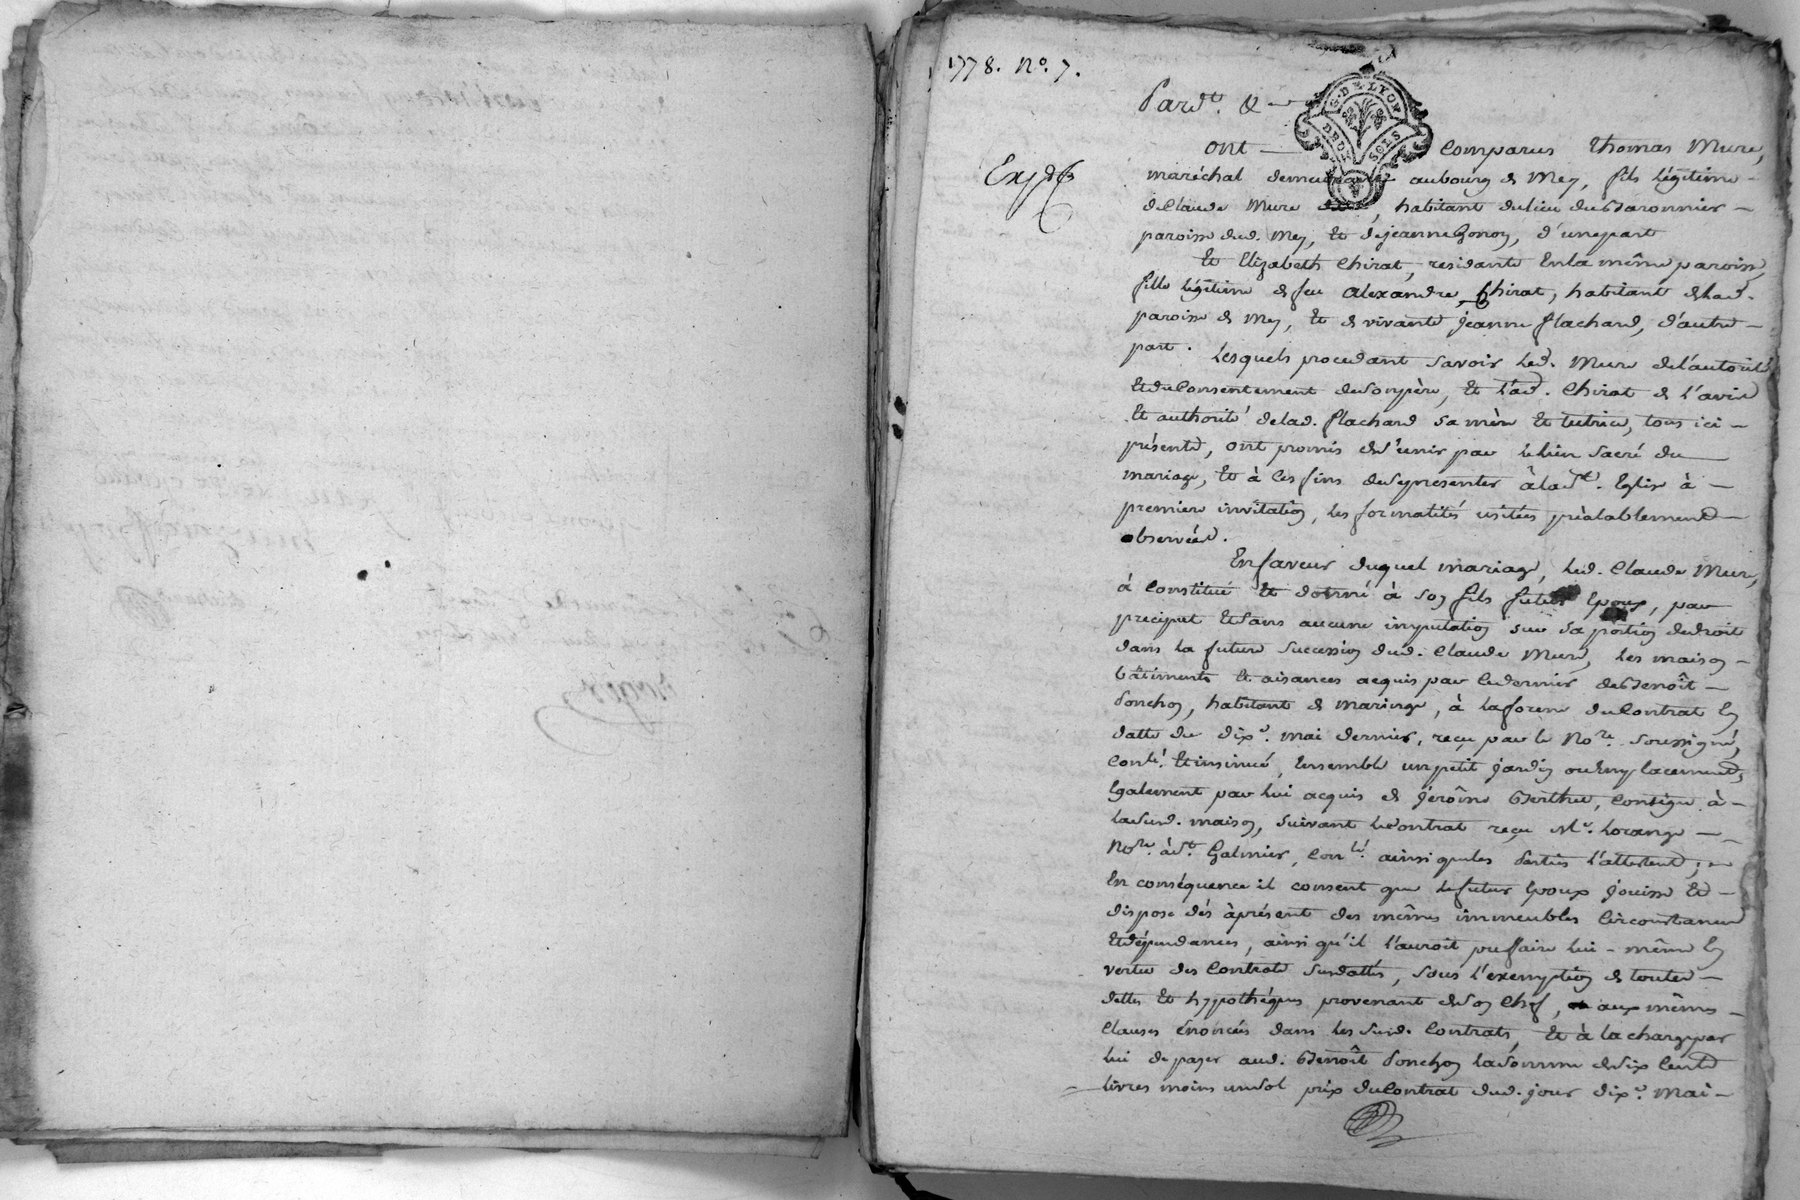 1778. No. 7.
Pardt. &
G. DE LYON
DEUX SOLS
Expdée
ont comparus Thomas Mure,
maréchal demeurant au bourg de Mey, fils légitime
de Claude Mure, habitant du lieu du Baronnier
paroisse dud. Mey, et de jeanne Gonon, d'une part
Et Elizabeth Chirat, residante en la même paroisse,
fille légitime de feu Alexandre Chirat, habitant de lad.
paroisse de Mey, et de vivante jeanne flachard, d'autre
part. Lesquels procedant savoir led. Mure de l'autorité
et du Consentement de son père, et lad. Chirat de l'avis
et authorité de lad. flachard sa mère et tutrice, tous ici
présents, ont promis de s'unir par le lien sacré du
mariage, et à ces fins de se presenter à lad. Ste. Eglise à
premiere invitation, les formalités usitées préalablement
observées.
En faveur duquel mariage, led. Claude Mure,
à Constitué et donné à son fils futur Epoux, par
preciput et sans aucune imputation sur sa portion de droit
dans la future succession dud. Claude Mure, les maison
bâtiments et aisances acquis par ce dernier de Benoît
Ponchon, habitant de maringe, à la forme du Contrat en
datte du dixe. mai dernier, reçu par le Nore. soussigné,
Conlé. et insinué, Ensemble un petit jardin ou Emplacement,
Egalement par lui acquis de jerôme Berthet, contigu à
la susd. maison, suivant le Contrat reçu Me. Lorange
Nore. à St. Galmier, Conlé. ainsi que les parties l'attestent;
En conséquence il consent que le futur Epoux jouisse et
dispose dés àprésent des mêmes immeubles Circonstances
et dépendances, ainsi qu'il l'auroit pu faire lui-même en
vertu des Contrats susdattés, sous l'exemption de toutes
dettes et hypothéques provenant de son Chef, aux mêmes
Clauses énoncées dans les susd. Contrats, et à la charge par
lui de payer aud. Benoît Ponchon la somme de six Cents
livres moins un sol prix du Contrat dud. jour dixe. mai